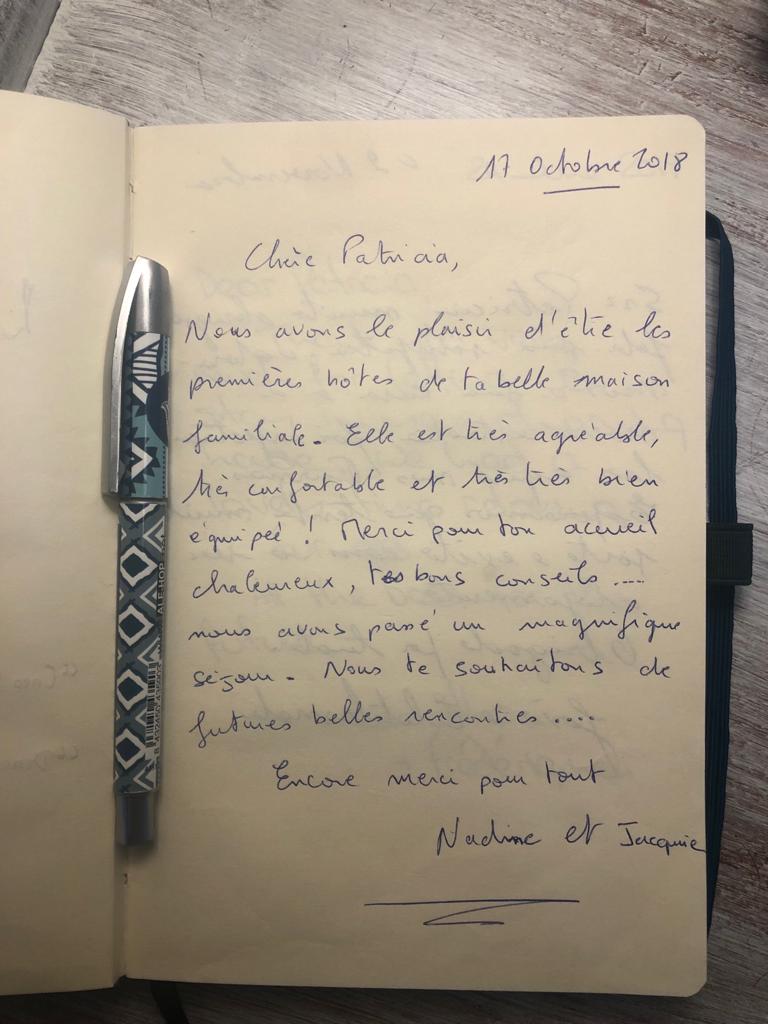 17 Octobre 2018
Chère Patricia,
Nous avons le plaisir d'être les
premières hôtes de ta belle maison
familiale. Elle est très agréable,
très confortable et très très bien
équipée ! Merci pour ton accueil
chaleureux, tes bons conseils ....
nous avons passé un magnifique
séjour. Nous te souhaitons de
futures belles rencontres ....
Encore merci pour tout
Nadine et Jacquie
ALE-HOP